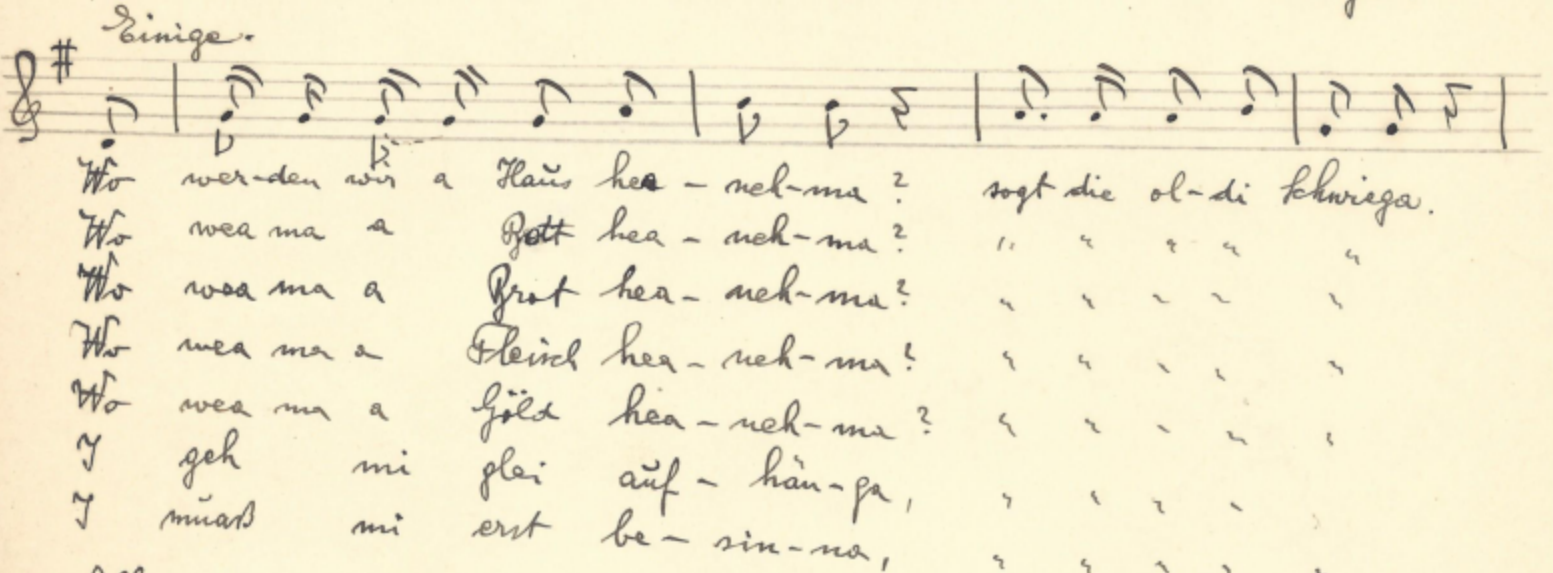 Einige.
Wo wer-den wir a Haus hea - neh-ma? sogt die ol-di Schwiega.
Wo wea ma a Bott hea - neh-ma? " " " " "
Wo wea ma a Brot hea - neh-ma? " " " " "
Wo wea ma a Fleisch hea - neh-ma? " " " " "
Wo wea ma a Göld hea - neh-ma? " " " " "
I geh mi glei auf - hän-ga, " " " "
I muaß mi erst be - sin-na, " " " " "